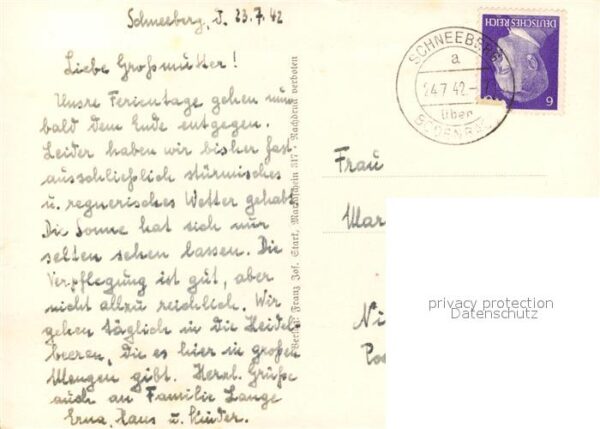 Schneeberg, d. 23.7.42
Liebe Großmutter!
Unsre Ferientage gehen nun
bald dem Ende entgegen.
Leider haben wir bisher fast
ausschließlich stürmisches
u. regnerisches Wetter gehabt.
Die Sonne hat sich nur
selten sehen lassen. Die
Verpflegung ist gut, aber
nicht allzu reichlich. Wir
gehen täglich in die Heidel-
beeren, die es hier in großen
Mengen gibt. Herzl. Grüße
auch an Familie Lange
Erna, Hans u. Kinder.
Verlag: Franz Jos. Start, Marktschein 317 · Nachdruck verboten
SCHNEEBERG
a
24.7.42
über
DEUTSCHES REICH
6
Frau
Mar
Ni
Po
privacy protection
Datenschutz